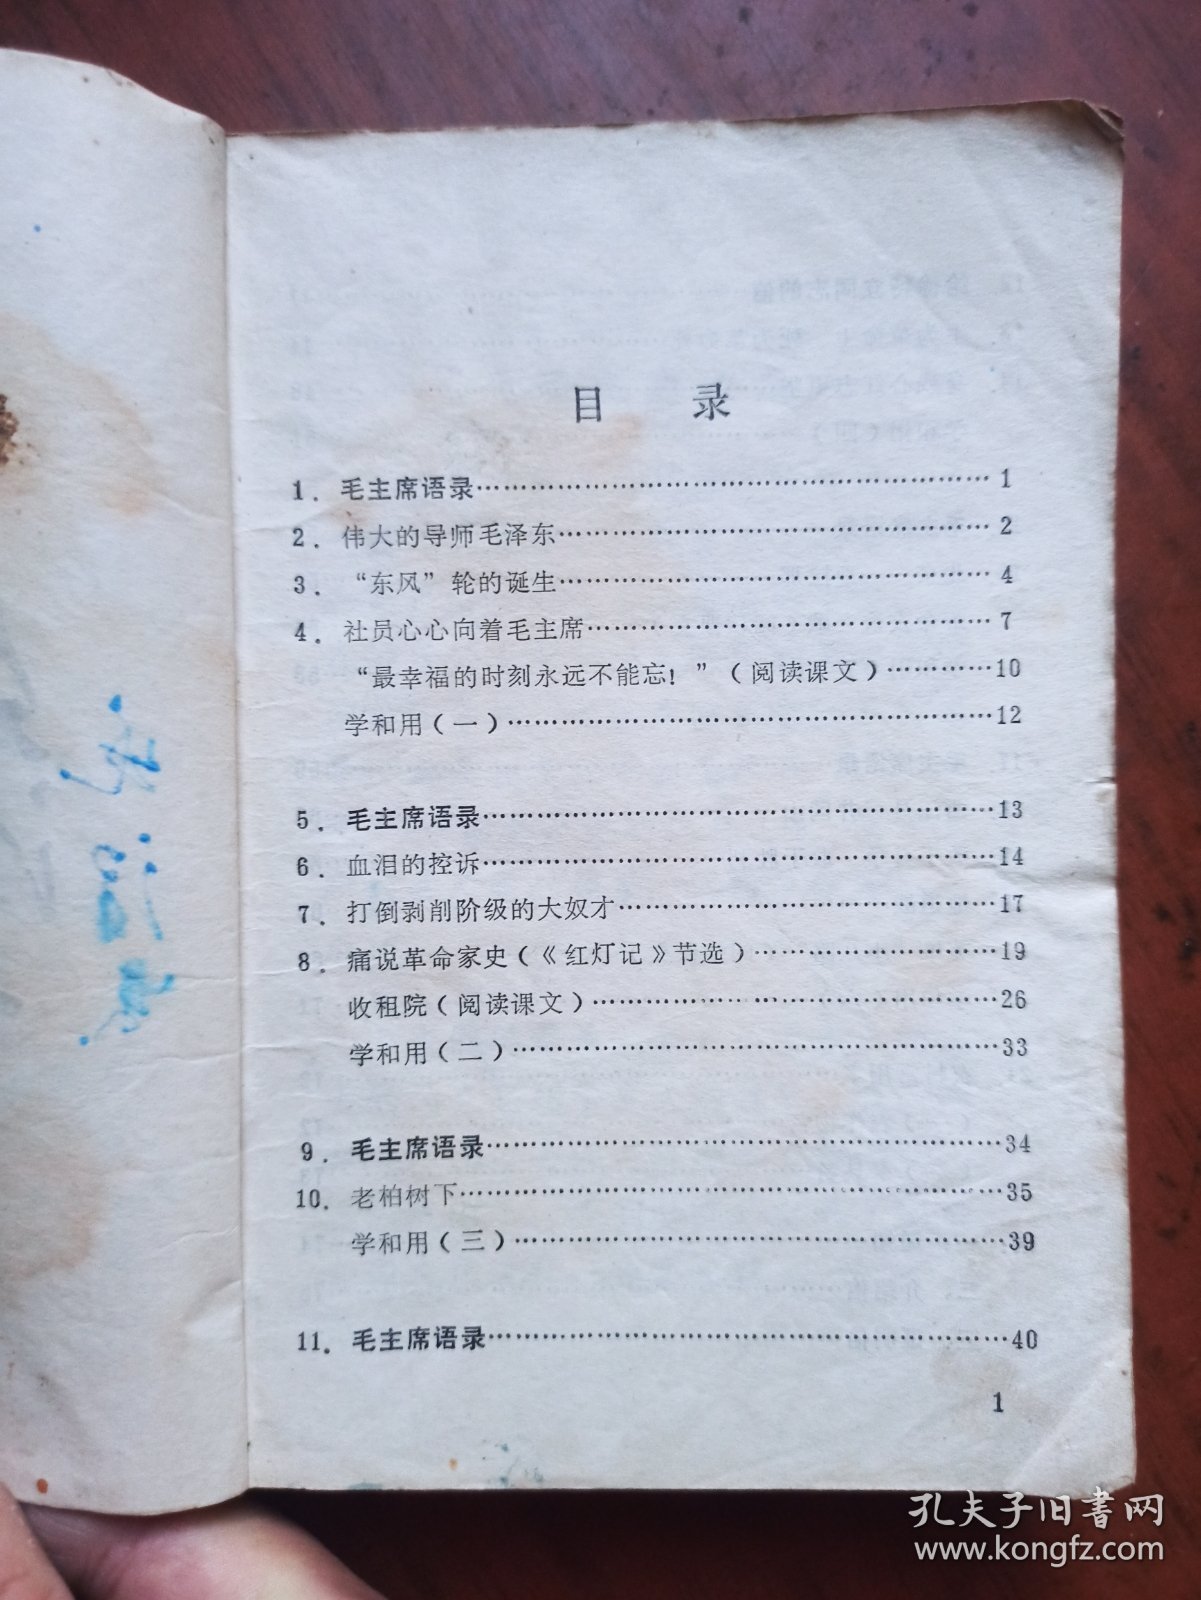 目 录
1. 毛主席语录……………………………………………… 1
2. 伟大的导师毛泽东……………………………………… 2
3. “东风”轮的诞生……………………………………… 4
4. 社员心心向着毛主席…………………………………… 7
“最幸福的时刻永远不能忘！”（阅读课文）…………10
学和用（一）………………………………………………12
5. 毛主席语录………………………………………………13
6. 血泪的控诉………………………………………………14
7. 打倒剥削阶级的大奴才…………………………………17
8. 痛说革命家史（《红灯记》节选）……………………19
收租院（阅读课文）………………………………………26
学和用（二）………………………………………………33
9. 毛主席语录………………………………………………34
10. 老柏树下…………………………………………………35
学和用（三）………………………………………………39
11. 毛主席语录………………………………………………40
1
孔夫子旧书网
www.kongfz.com